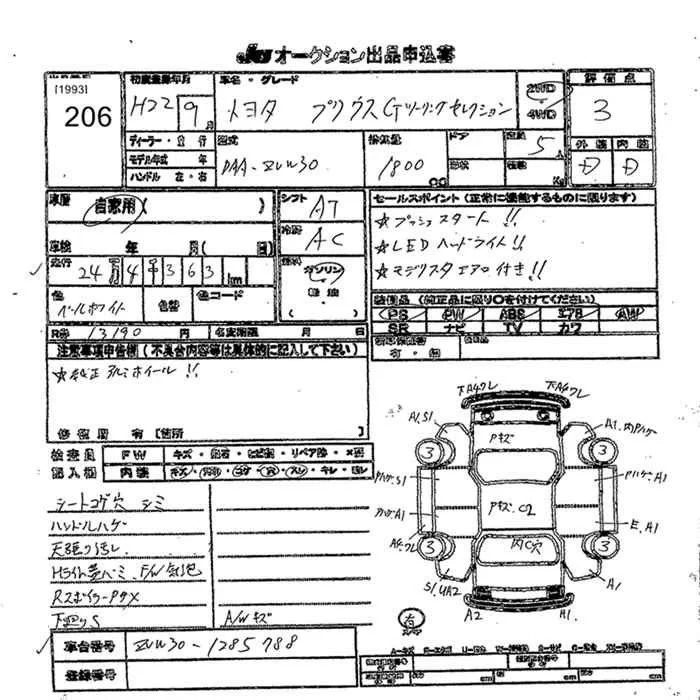 オークション出品申込書
[1993]
206
初度登録年月
H22 9月
車名・グレード
トヨタ プリウス Gツーリングセレクション
2WD
4WD
評価点
3
外装 内装
D D
ディーラー・並行
モデル年式 年
ハンドル 左・右
型式
DAA-ZVW30
排気量
1800 cc
ドア
形状
定員
5 人
積載 Kg
車歴
自家用( )
シフト
AT
セールスポイント(正常に機能するものに限ります)
☆プッシュスタート!!
☆LEDヘッドライト!!
☆モデリスタエアロ付き!!
冷房
AC
車検 年 月( 日)
走行
24万4千363 km
燃料
ガソリン
軽油
( )
色
パールホワイト
色替
色コード
装備品(純正品に限り○を付けてください)
PS PW ABS エアB AW
SR ナビ TV カワ
R券 13190 円
名変期限 月 日
新車保証書
有・無
注意事項申告欄(不具合内容等は具体的に記入して下さい)
☆純正アルミホイール!!
修復歴 有[箇所
検査員
記入欄
FW キズ・飛石・ヒビ割・リペア跡・×要
内装
シートコゲ穴 シミ
ハンドルハゲ
天張り汚レ
Hライト黄バミ F/W気泡
RスポイラーPキズ
下廻りS
A/Wキズ
下A4ワレ 下A4ワレ
A1,S1
Pキズ
3 3
PハゲA1
Pキズ,C2
E,A1
内C穴
3 3
S1,UA2
A1
A2 A1
車台番号
ZVW30-1285788
登録番号
cm cm cm